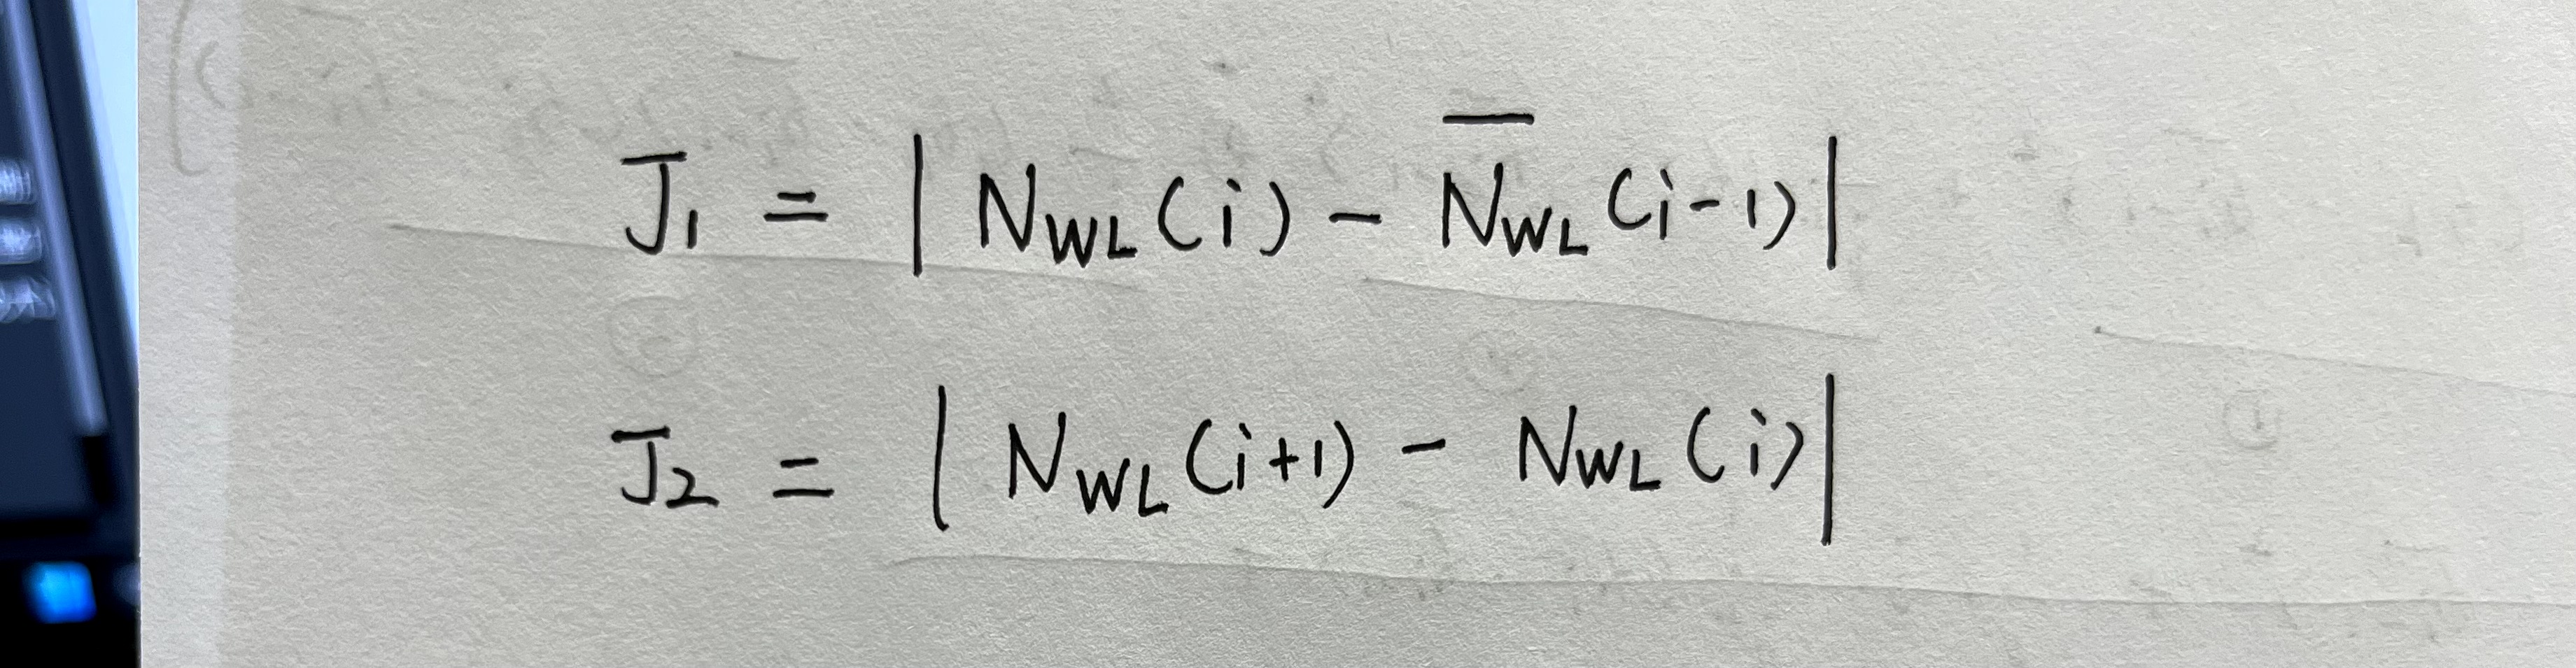 J₁ = | N_WL(i) - N̅_WL(i-1) |
J₂ = | N_WL(i+1) - N_WL(i) |